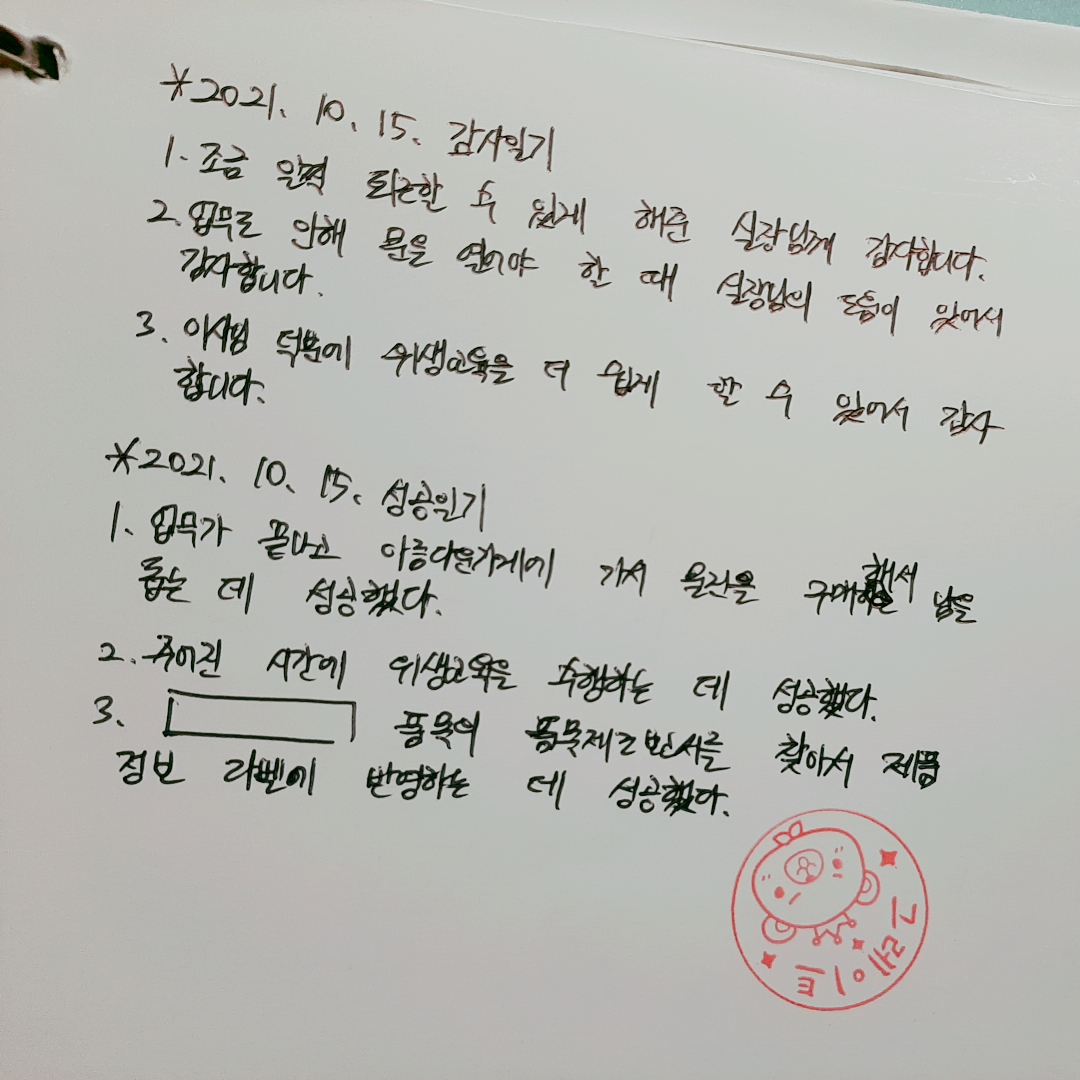 *2021. 10. 15. 감사일기
1. 조금 일찍 퇴근할 수 있게 해준 실장님께 감사합니다.
2. 업무로 인해 문을 열어야 할 때 실장님의 도움이 있어서
감사합니다.
3. 이사님 덕분에 위생교육을 더 쉽게 할 수 있어서 감사
합니다.
*2021. 10. 15. 성공일기
1. 업무가 끝나고 아름다운가게에 가서 물건을 구매해서 남을
돕는 데 성공했다.
2. 주어진 시간에 위생교육을 수행하는 데 성공했다.
3. 품목의 품목제조보고서를 찾아서 제품
정보 라벨에 반영하는 데 성공했다.
그레이트